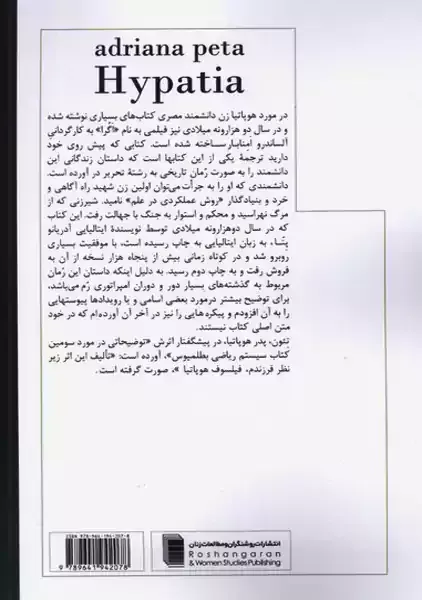 adriana peta
Hypatia
در مورد هوپاتیا زن دانشمند مصری کتاب‌های بسیاری نوشته شده
و در سال دو هزارونه میلادی نیز فیلمی به نام «آگُرا» به کارگردانیِ
آلساندرو اِمنابار ساخته شده است. کتابی که پیش روی خود
دارید ترجمهٔ یکی از این کتابها است که داستان زندگانی این
دانشمند را به صورت رُمان تاریخی به رشتهٔ تحریر در آورده است.
دانشمندی که او را به جرأت می‌توان اولین زن شهید راه آگاهی و
خرد و بنیادگذار «روش عملکردی در علم» نامید. شیرزنی که از
مرگ نهراسید و محکم و استوار به جنگ با جهالت رفت. این کتاب
که در سال دوهزارونه میلادی توسط نویسندهٔ ایتالیایی آدریانو
پِتـا، به زبان ایتالیایی به چاپ رسیده است، با موفقیت بسیاری
روبرو شد و در کوتاه زمانی بیش از پنجاه هزار نسخه از آن به
فروش رفت و به چاپ دوم رسید. به دلیل اینکه داستان این رُمان
مربوط به گذشته‌های بسیار دور و دوران امپراتوری رُم می‌باشد،
برای توضیح بیشتر درمورد بعضی اسامی و یا رویدادها پیوستهایی
را به آن افزودم و پیکره‌هایی را نیز در آخر آن آورده‌ام که در خود
متن اصلی کتاب نیستند.
تِئون، پدر هوپاتیا، در پیشگفتار اثرش «توضیحاتی در مورد سومین
کتاب سیستم ریاضی بطلمیوس»، آورده است: «تألیف این اثر زیر
نظر فرزندم، فیلسوف هوپاتیا »، صورت گرفته است.
ISBN 978-964-194-207-8
9 789641 942078
انتشارات روشنگران و مطالعات زنان
Roshangaran
& Women Studies Publishing